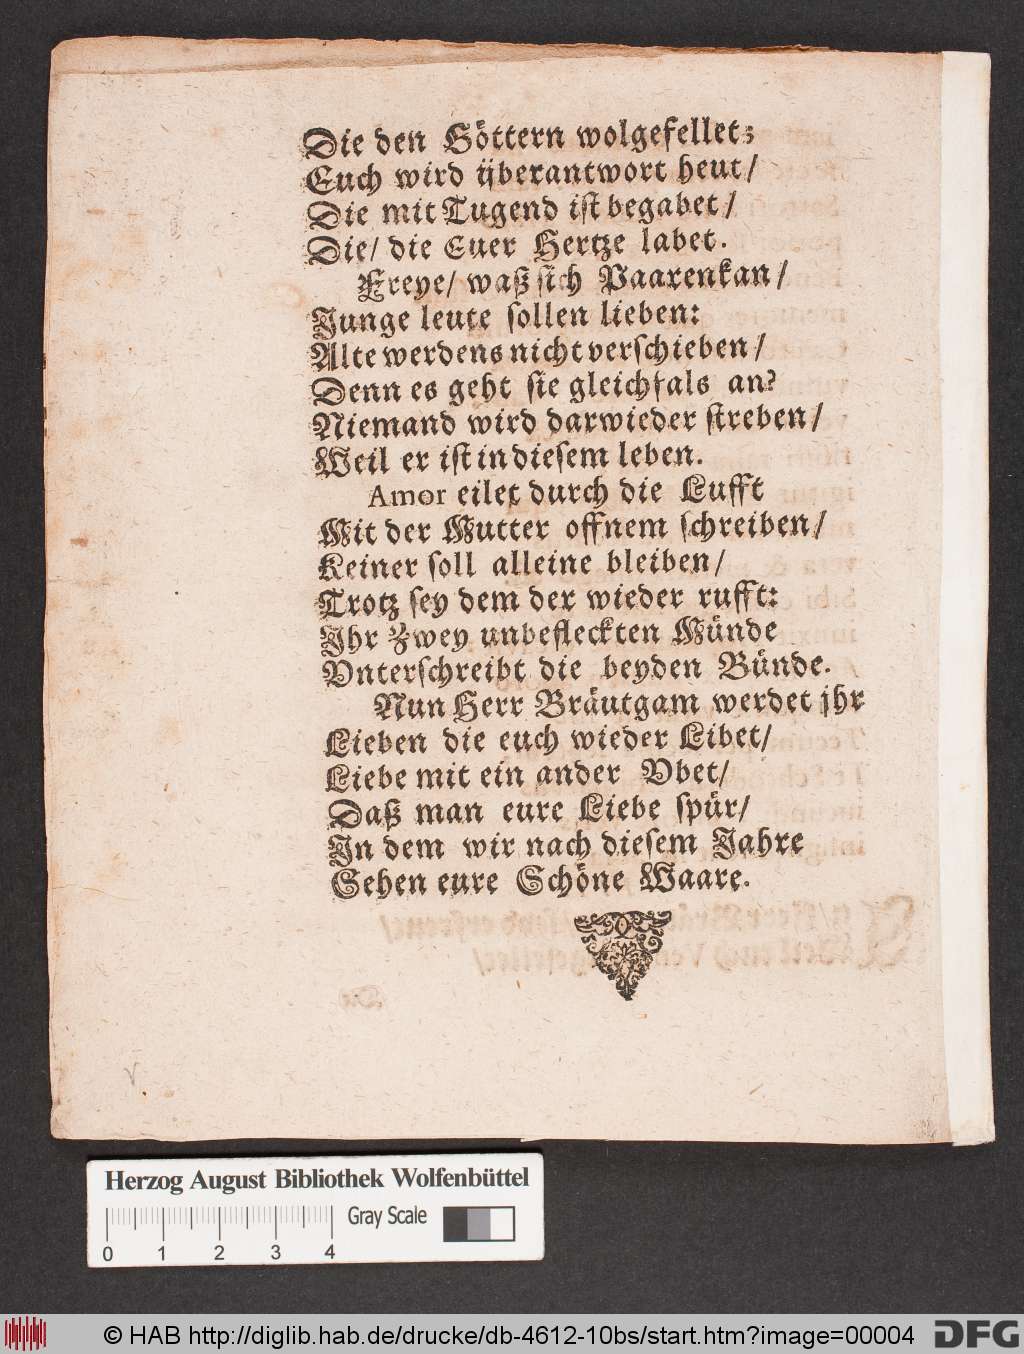 Die den Göttern wolgefellet;
Euch wird überantwort heut/
Die mit Tugend ist begabet/
Die/ die Euer Hertze labet.
Freye/ waß sich Paaren kan/
Junge leute sollen lieben:
Alte werdens nicht verschieben/
Denn es geht sie gleichfals an?
Niemand wird darwieder streben/
Weil er ist in diesem leben.
Amor eilet durch die Lufft
Mit der Mutter offnem schreiben/
Keiner soll alleine bleiben/
Trotz sey dem der wieder rufft:
Ihr Zwey unbefleckten Münde
Vnterschreibt die beyden Bünde.
Nun Herr Bräutgam werdet jhr
Lieben die euch wieder Libet/
Liebe mit ein ander Vbet/
Daß man eure Liebe spür/
In dem wir nach diesem Jahre
Sehen eure Schöne Waare.
Herzog August Bibliothek Wolfenbüttel
Gray Scale
0 1 2 3 4
© HAB http://diglib.hab.de/drucke/db-4612-10bs/start.htm?image=00004 DFG